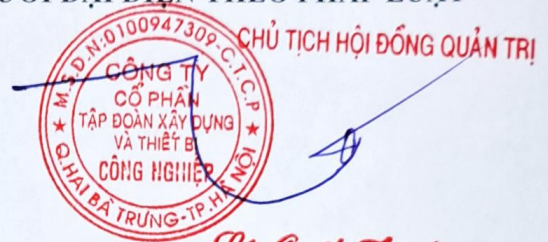 ĐẠI DIỆN THEO PHÁP LUẬT
CHỦ TỊCH HỘI ĐỒNG QUẢN TRỊ
M.S.D.N:0100947309-C.T.C.P
CÔNG TY
CỔ PHẦN
TẬP ĐOÀN XÂY DỰNG
VÀ THIẾT BỊ
CÔNG NGHIỆP
Q.HAI BÀ TRƯNG-TP.HÀ NỘI